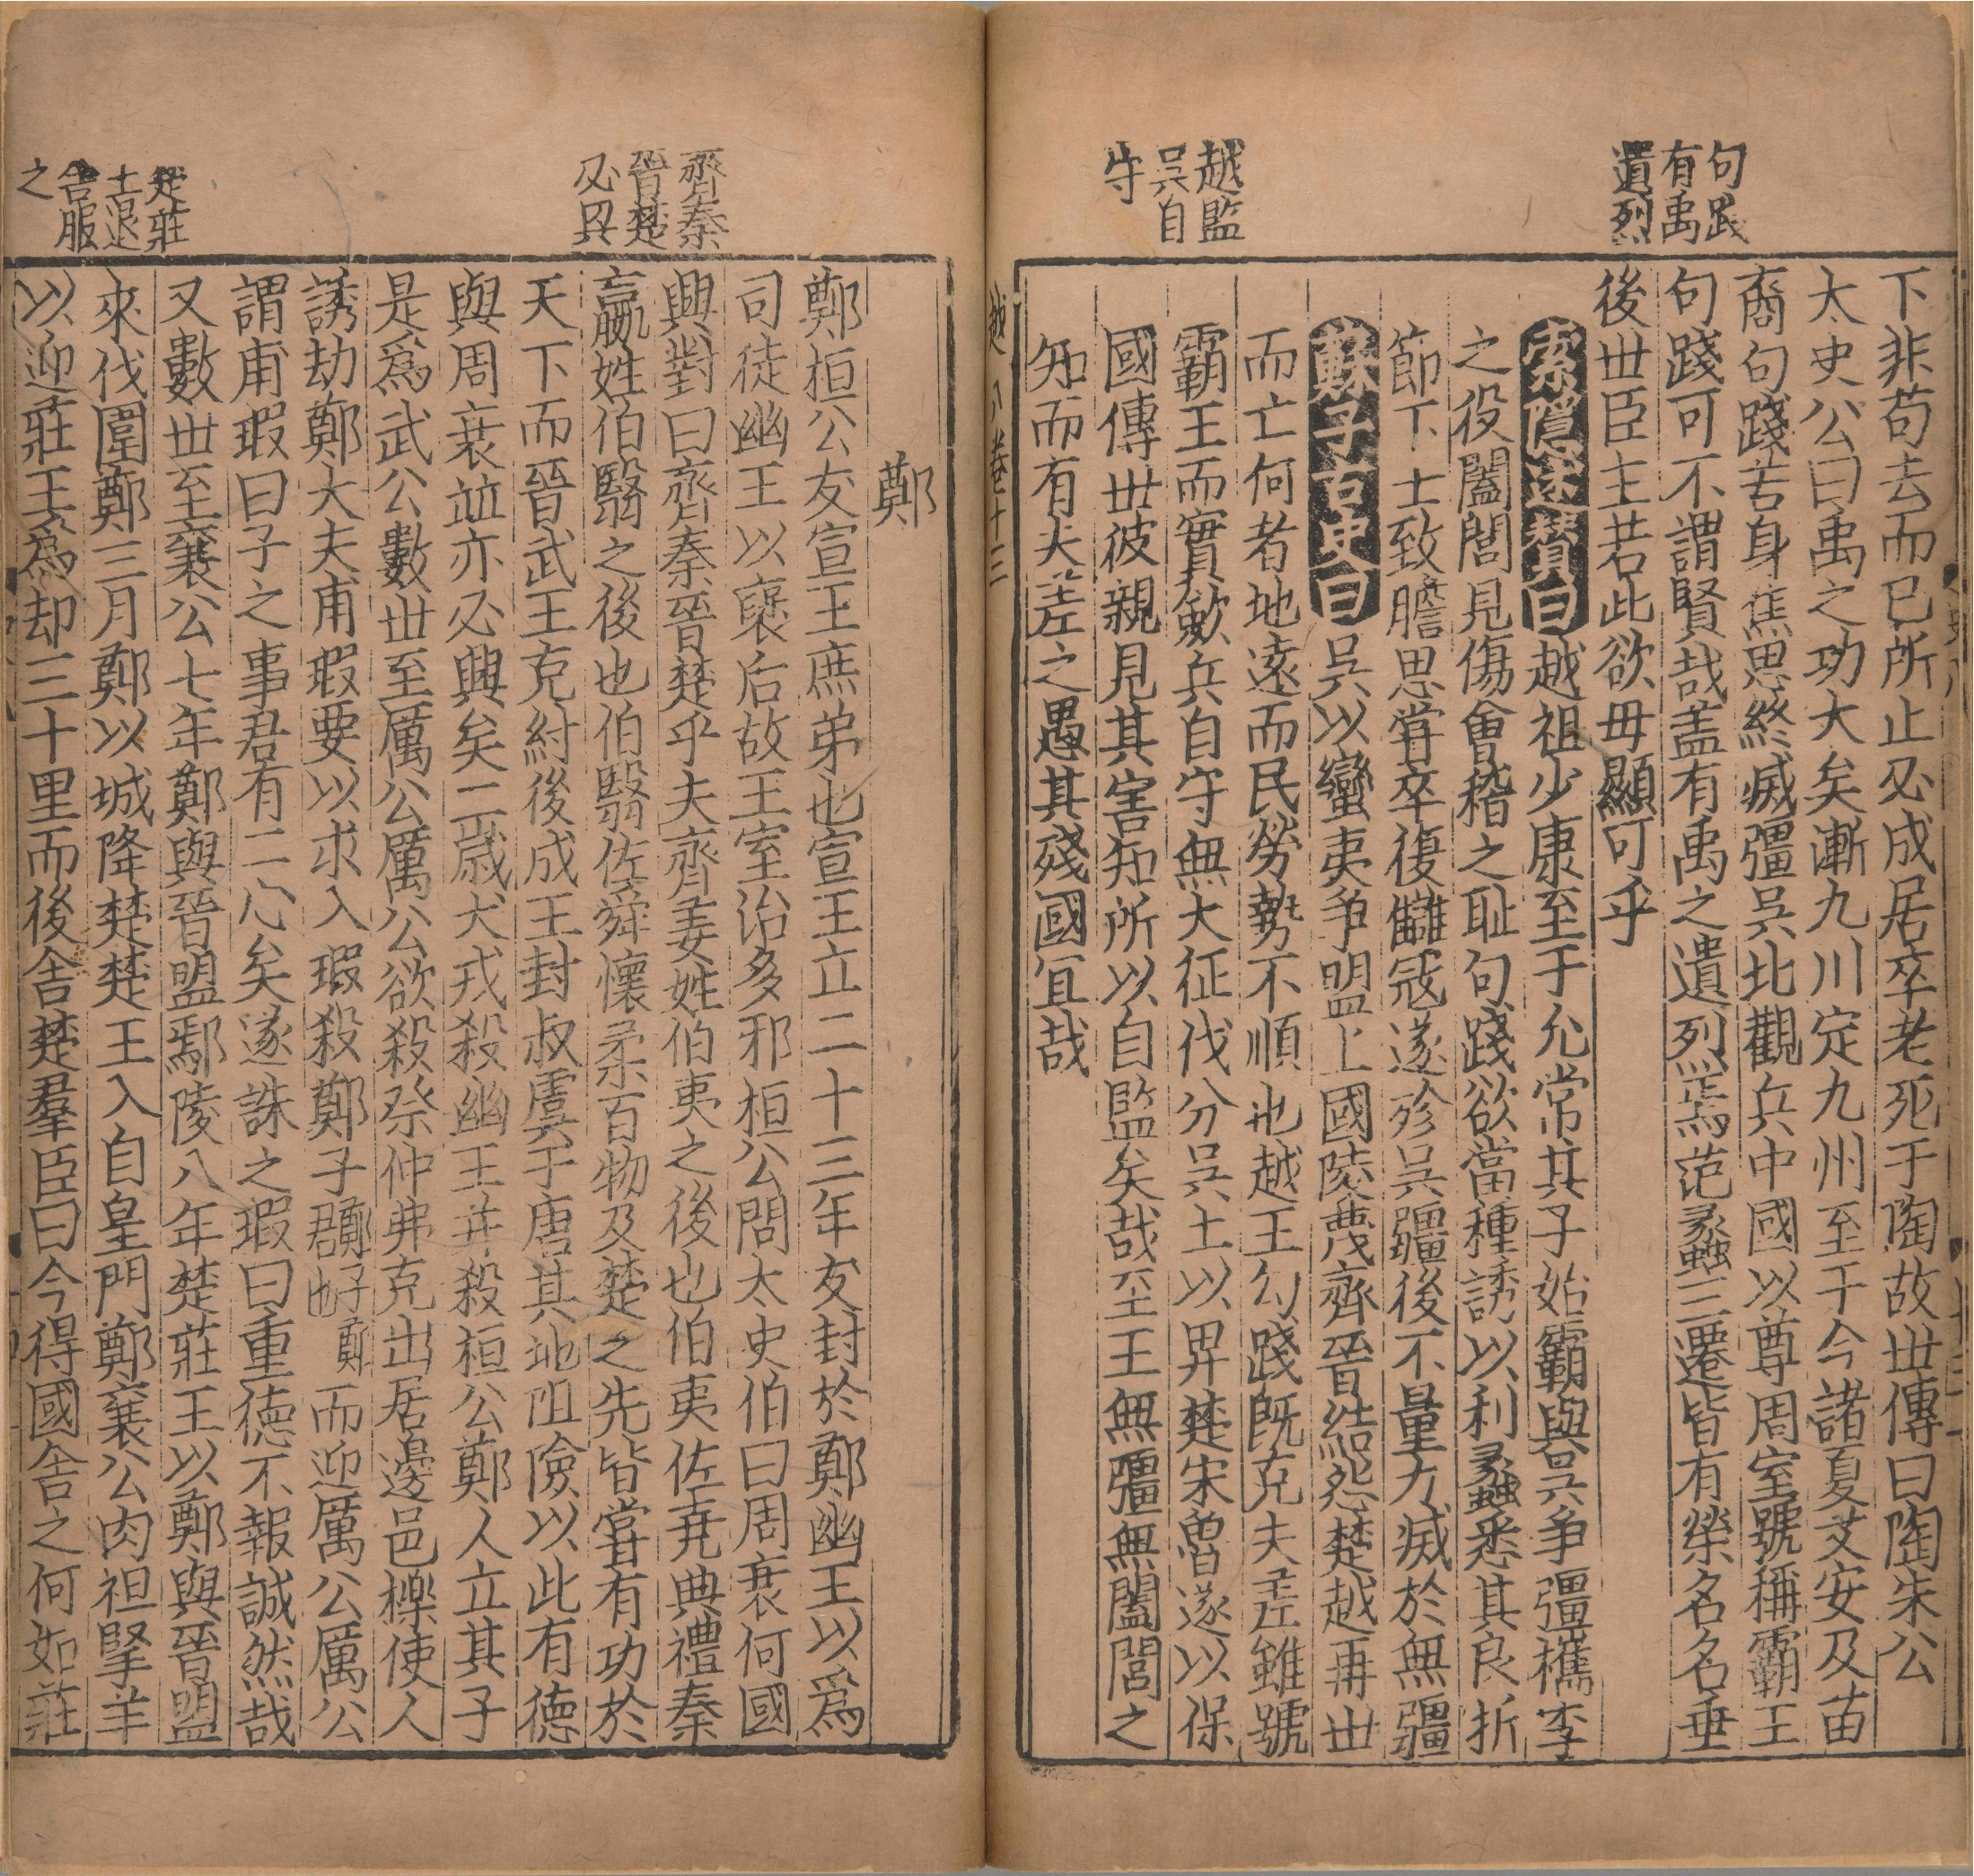 句踐
有禹
遺烈
越監
吳自
守
下非苟去而已所止必成居卒老死于陶故世傳曰陶朱公
太史公曰禹之功大矣漸九川定九州至于今諸夏艾安及苗
裔句踐苦身焦思終滅彊吳北觀兵中國以尊周室號稱霸王
句踐可不謂賢哉盖有禹之遺烈焉范蠡三遷皆有榮名名垂
後世臣主若此欲毋顯可乎
索隱述贊曰越祖少康至于允常其子始霸與吳爭彊檇李
之役闔閭見傷會稽之恥句踐欲當種誘以利蠡悉其良折
節下士致膽思甞卒復讎寇遂殄吳彊後不量力滅於無彊
蘇子古史曰吳以蠻夷爭盟上國陵蔑齊晉結怨楚越再世
而亡何者地遠而民勞勢不順也越王勾踐既克夫差雖號
霸王而實斂兵自守無大征伐分吳土以畀楚宋魯遂以保
國傳世彼親見其害知所以自監矣哉至王無彊無闔閭之
知而有夫差之愚其殘國宜哉
越 八 卷十三
齊秦
晉楚
必興
楚莊
王退
舍服
之
鄭
鄭桓公友宣王庶弟也宣王立二十三年友封於鄭幽王以爲
司徒幽王以襃后故王室治多邪桓公問太史伯曰周衰何國
興對曰齊秦晉楚乎夫齊姜姓伯夷之後也伯夷佐堯典禮秦
嬴姓伯翳之後也伯翳佐舜懷柔百物及楚之先皆甞有功於
天下而晉武王克紂後成王封叔虞于唐其地阻險以此有德
與周衰並亦必興矣二歲犬戎殺幽王并殺桓公鄭人立其子
是爲武公數世至厲公厲公欲殺祭仲弗克出居邊邑櫟使人
誘劫鄭大夫甫瑕要以求入瑕殺鄭子鄭子鄭君也而迎厲公厲公
謂甫瑕曰子之事君有二心矣遂誅之瑕曰重德不報誠然哉
又數世至襄公七年鄭與晉盟鄢陵八年楚莊王以鄭與晉盟
來伐圍鄭三月鄭以城降楚楚王入自皇門鄭襄公肉袒掔羊
以迎莊王爲却三十里而後舍楚羣臣曰今得國舍之何如莊